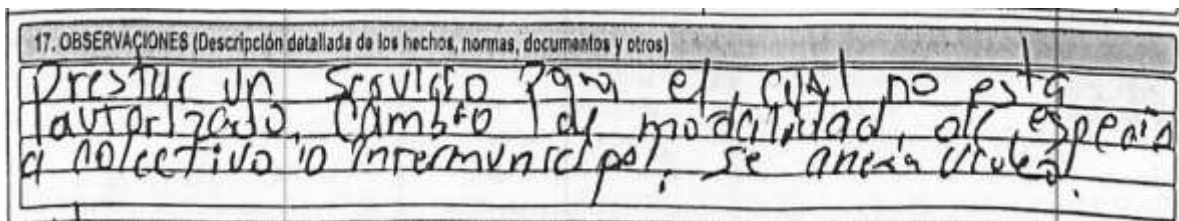 17. OBSERVACIONES (Descripción detallada de los hechos, normas, documentos y otros)
Prestar un servicio para el cual no está
autorizado, Cambio de modalidad, de especial
a colectivo o intermunicipal, se anexa video.